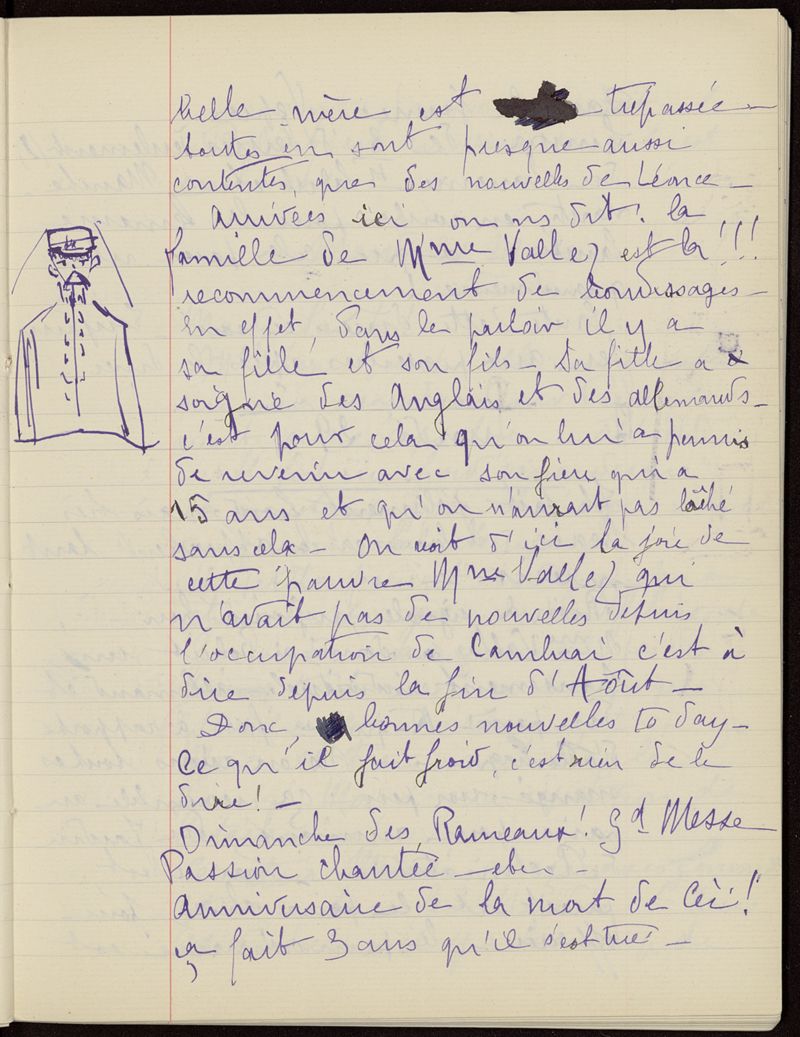 belle mère est trépassée -
toutes en sont presque aussi
contentes, que des nouvelles de Léonce -
Arrivées ici on ns dit : la
famille de Mme Vallez est là !!!
recommencement de bondissages -
En effet, dans le parloir il y a
sa fille et son fils - Sa fille a
soigné des Anglais et des allemands -
c'est pour cela qu'on lui a permis
de revenir avec son frère qui a
15 ans et qu'on n'aurait pas lâché
sans cela - On voit d'ici la joie de
cette pauvre Mme Vallez qui
n'avait pas de nouvelles depuis
l'occupation de Cambrai c'est à
dire depuis la fin d'Août -
Donc, bonnes nouvelles to day -
Ce qu'il fait froid, c'est rien de le
dire ! -
Dimanche des Rameaux ! Gd Messe
Passion chantée - etc -
Anniversaire de la mort de Céi !
ça fait 3 ans qu'il s'est tué -